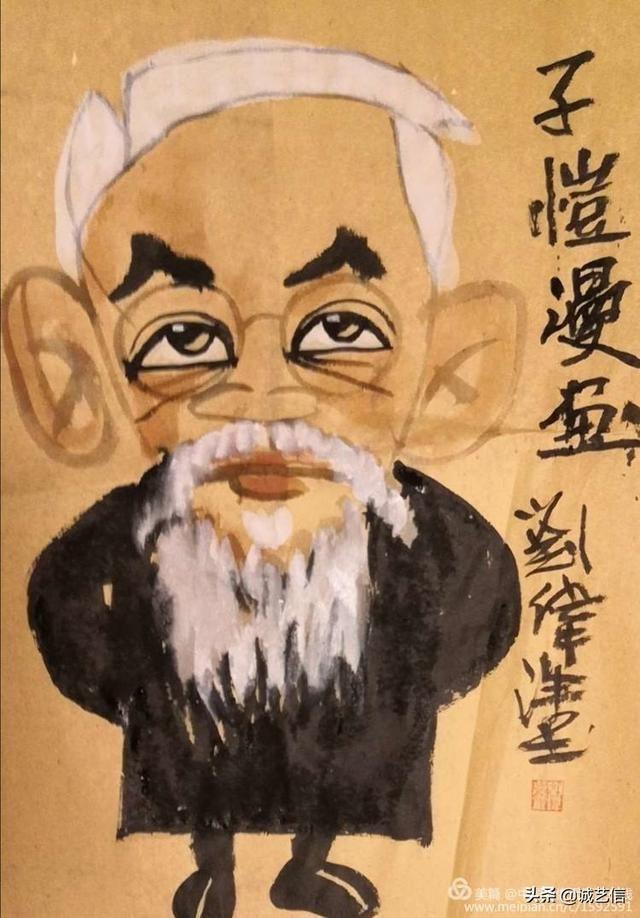 子愷漫画
劉偉
美篇 @中
头条 @诚艺信
www.meipian.cn/c/1592591